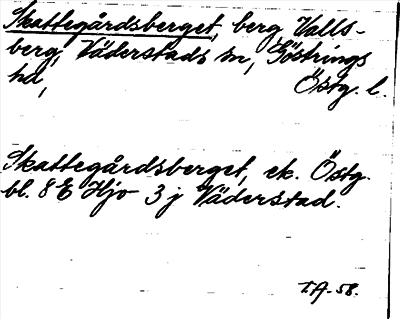 Skattegårdsberget, berg Valls-
berg, Väderstads sn, Göstrings
hd, Östg. l.
Skattegårdsberget, ek. Östg.
bl. 8E Hjo 3j Väderstad.
T.A. 58.